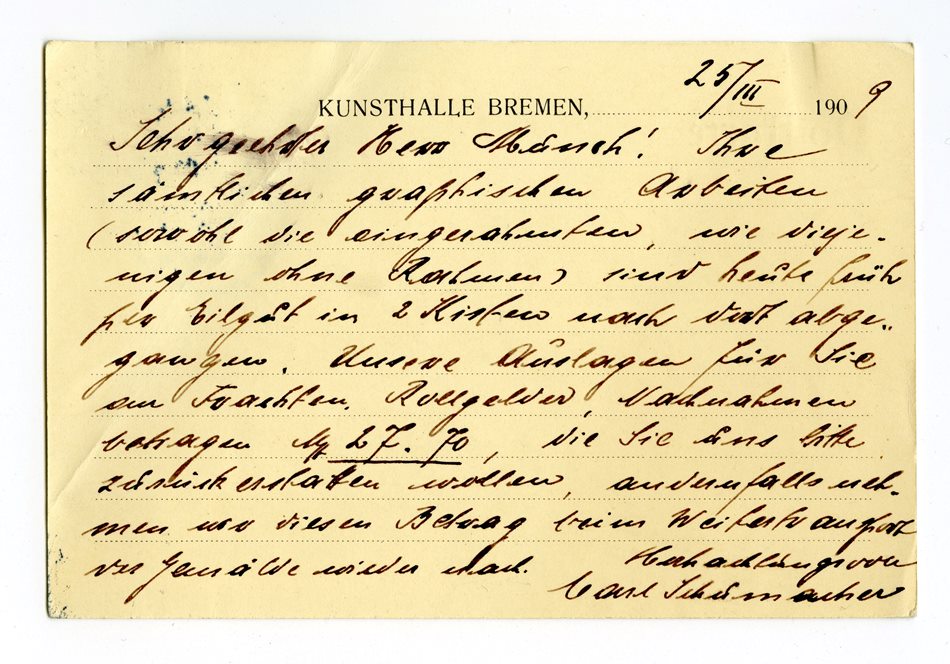 25/III
KUNSTHALLE BREMEN, 1909
Sehr geehrter Herr Münch! Ihre
sämtlichen graphischen Arbeiten
(sowohl die eingerahmten, wie dieje-
nigen ohne Rahmen) sind heute früh
per Eilgut in 2 Kisten nach dort abge-
gangen. Unsere Auslagen für Sie
an Frachten, Rollgelder, Nachnahmen
betragen M 27.70, die Sie uns bitte
zurückerstatten wollen, andernfalls neh-
men wir diesen Betrag beim Weitertransport
der Gemälde wieder nach.
Hochachtungsvoll
Carl Schümacher